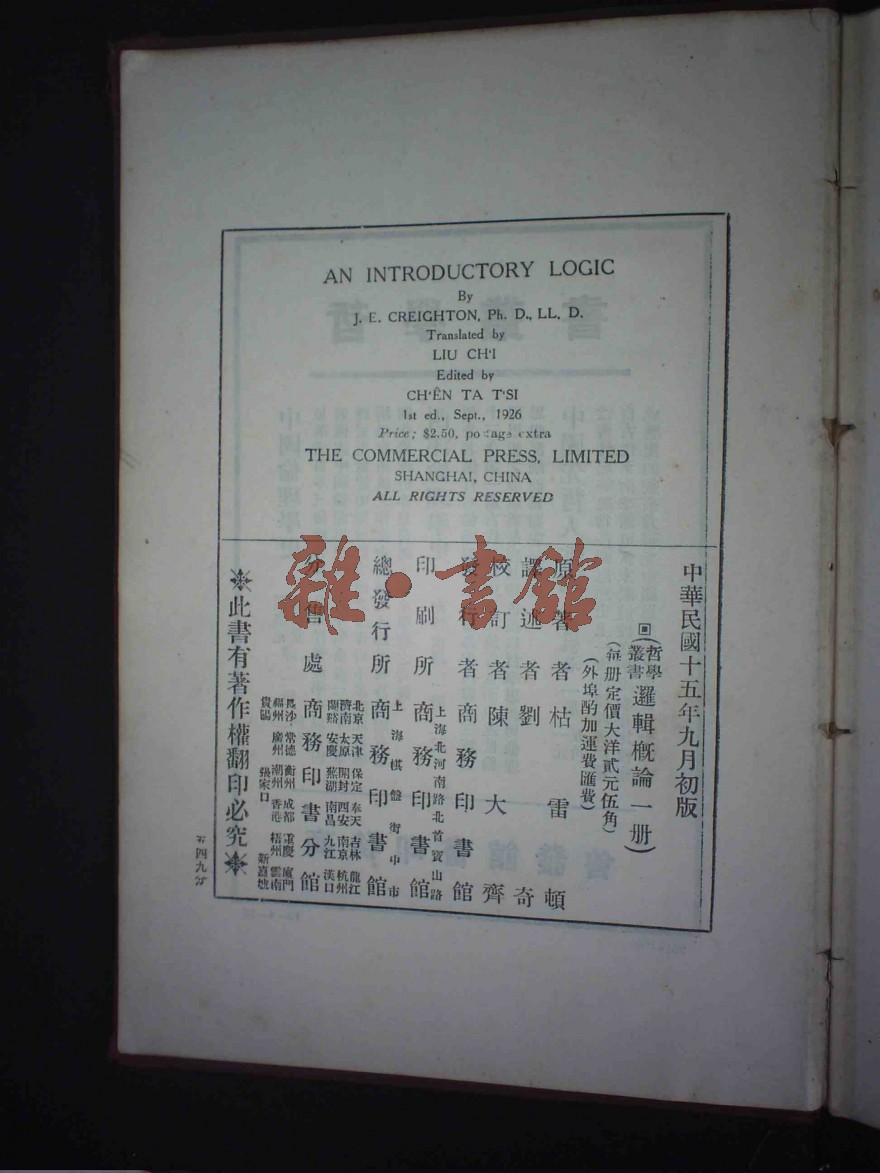 AN INTRODUCTORY LOGIC
By
J. E. CREIGHTON, Ph. D., LL. D.
Translated by
LIU CH‘I
Edited by
CH‘ÊN TA T‘SI
1st ed., Sept., 1926
Price; $2.50, postage extra
THE COMMERCIAL PRESS, LIMITED
SHANGHAI, CHINA
ALL RIGHTS RESERVED
中華民國十五年九月初版
哲學叢書 邏輯概論一册
(每册定價大洋貳元伍角)
(外埠酌加運費匯費)
原著者 枯雷頓
譯述者 劉奇
校訂者 陳大齊
發行者 商務印書館
印刷所 上海北河南路北首寶山路 商務印書館
總發行所 上海棋盤街中市 商務印書館
分售處 商務印書分館
北京 天津 保定 奉天 吉林 龍江
濟南 太原 開封 西安 南京 杭州
蘭谿 安慶 蕪湖 南昌 九江 漢口
長沙 常德 衡州 成都 重慶 廈門
福州 廣州 潮州 香港 梧州 雲南
貴陽 張家口 新嘉坡
※此書有著作權翻印必究※
雜·書館